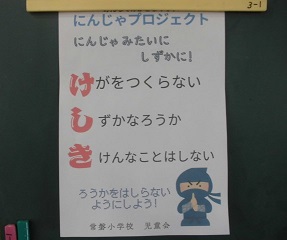 にんじゃプロジェクト
にんじゃみたいに
しずかに!
けがをつくらない
しずかなろうか
きけんなことはしない
ろうかをはしらない
ようにしよう!
常磐小学校 児童会
3-1